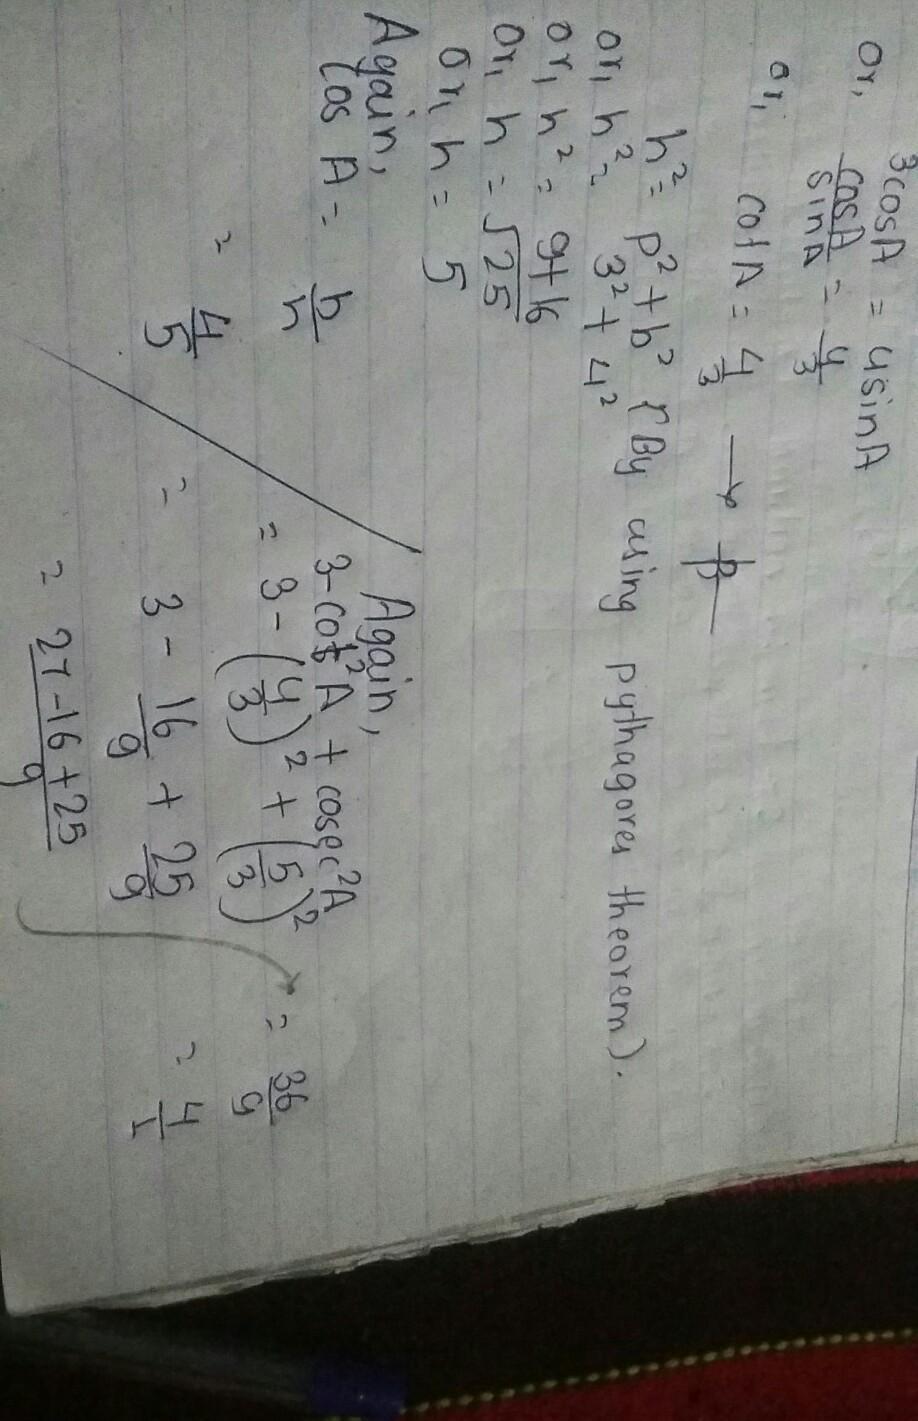 3cosA = 4sinA
or, cosA/sinA = 4/3
or, cotA = 4/3 → b/p
h² = p² + b² (By using pythagores theorem).
or, h² = 3² + 4²
or, h² = 9+16
or, h = √25
or, h = 5
Again,
Cos A = b/h
= 4/5
Again,
3-cot²A + cosec²A
= 3 - (4/3)² + (5/3)²
= 3 - 16/9 + 25/9
= 27-16+25/9
= 36/9
= 4/1